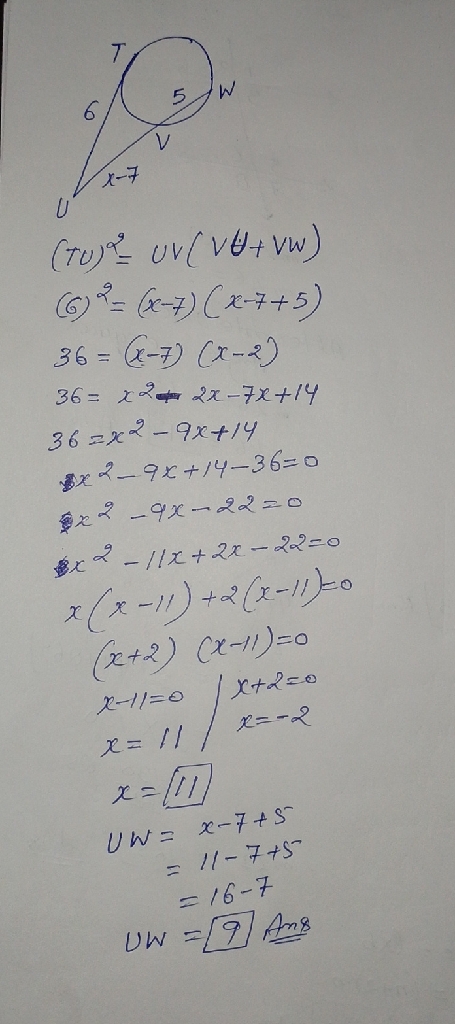 T
6
5 W
V
x-7
U
(TU)² = UV(VU+VW)
(6)² = (x-7) (x-7+5)
36 = (x-7) (x-2)
36 = x² - 2x-7x+14
36 = x² - 9x+14
x² - 9x + 14 - 36 = 0
x² - 9x - 22 = 0
x² - 11x + 2x - 22 = 0
x(x-11) + 2(x-11) = 0
(x+2) (x-11) = 0
x-11=0 / x+2=0
x = 11 / x = -2
x = 11
UW = x-7+5
= 11-7+5
= 16-7
UW = 9 Ans